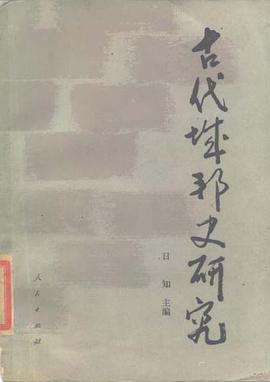 古代城邦史研究
日知主编
人民出版社